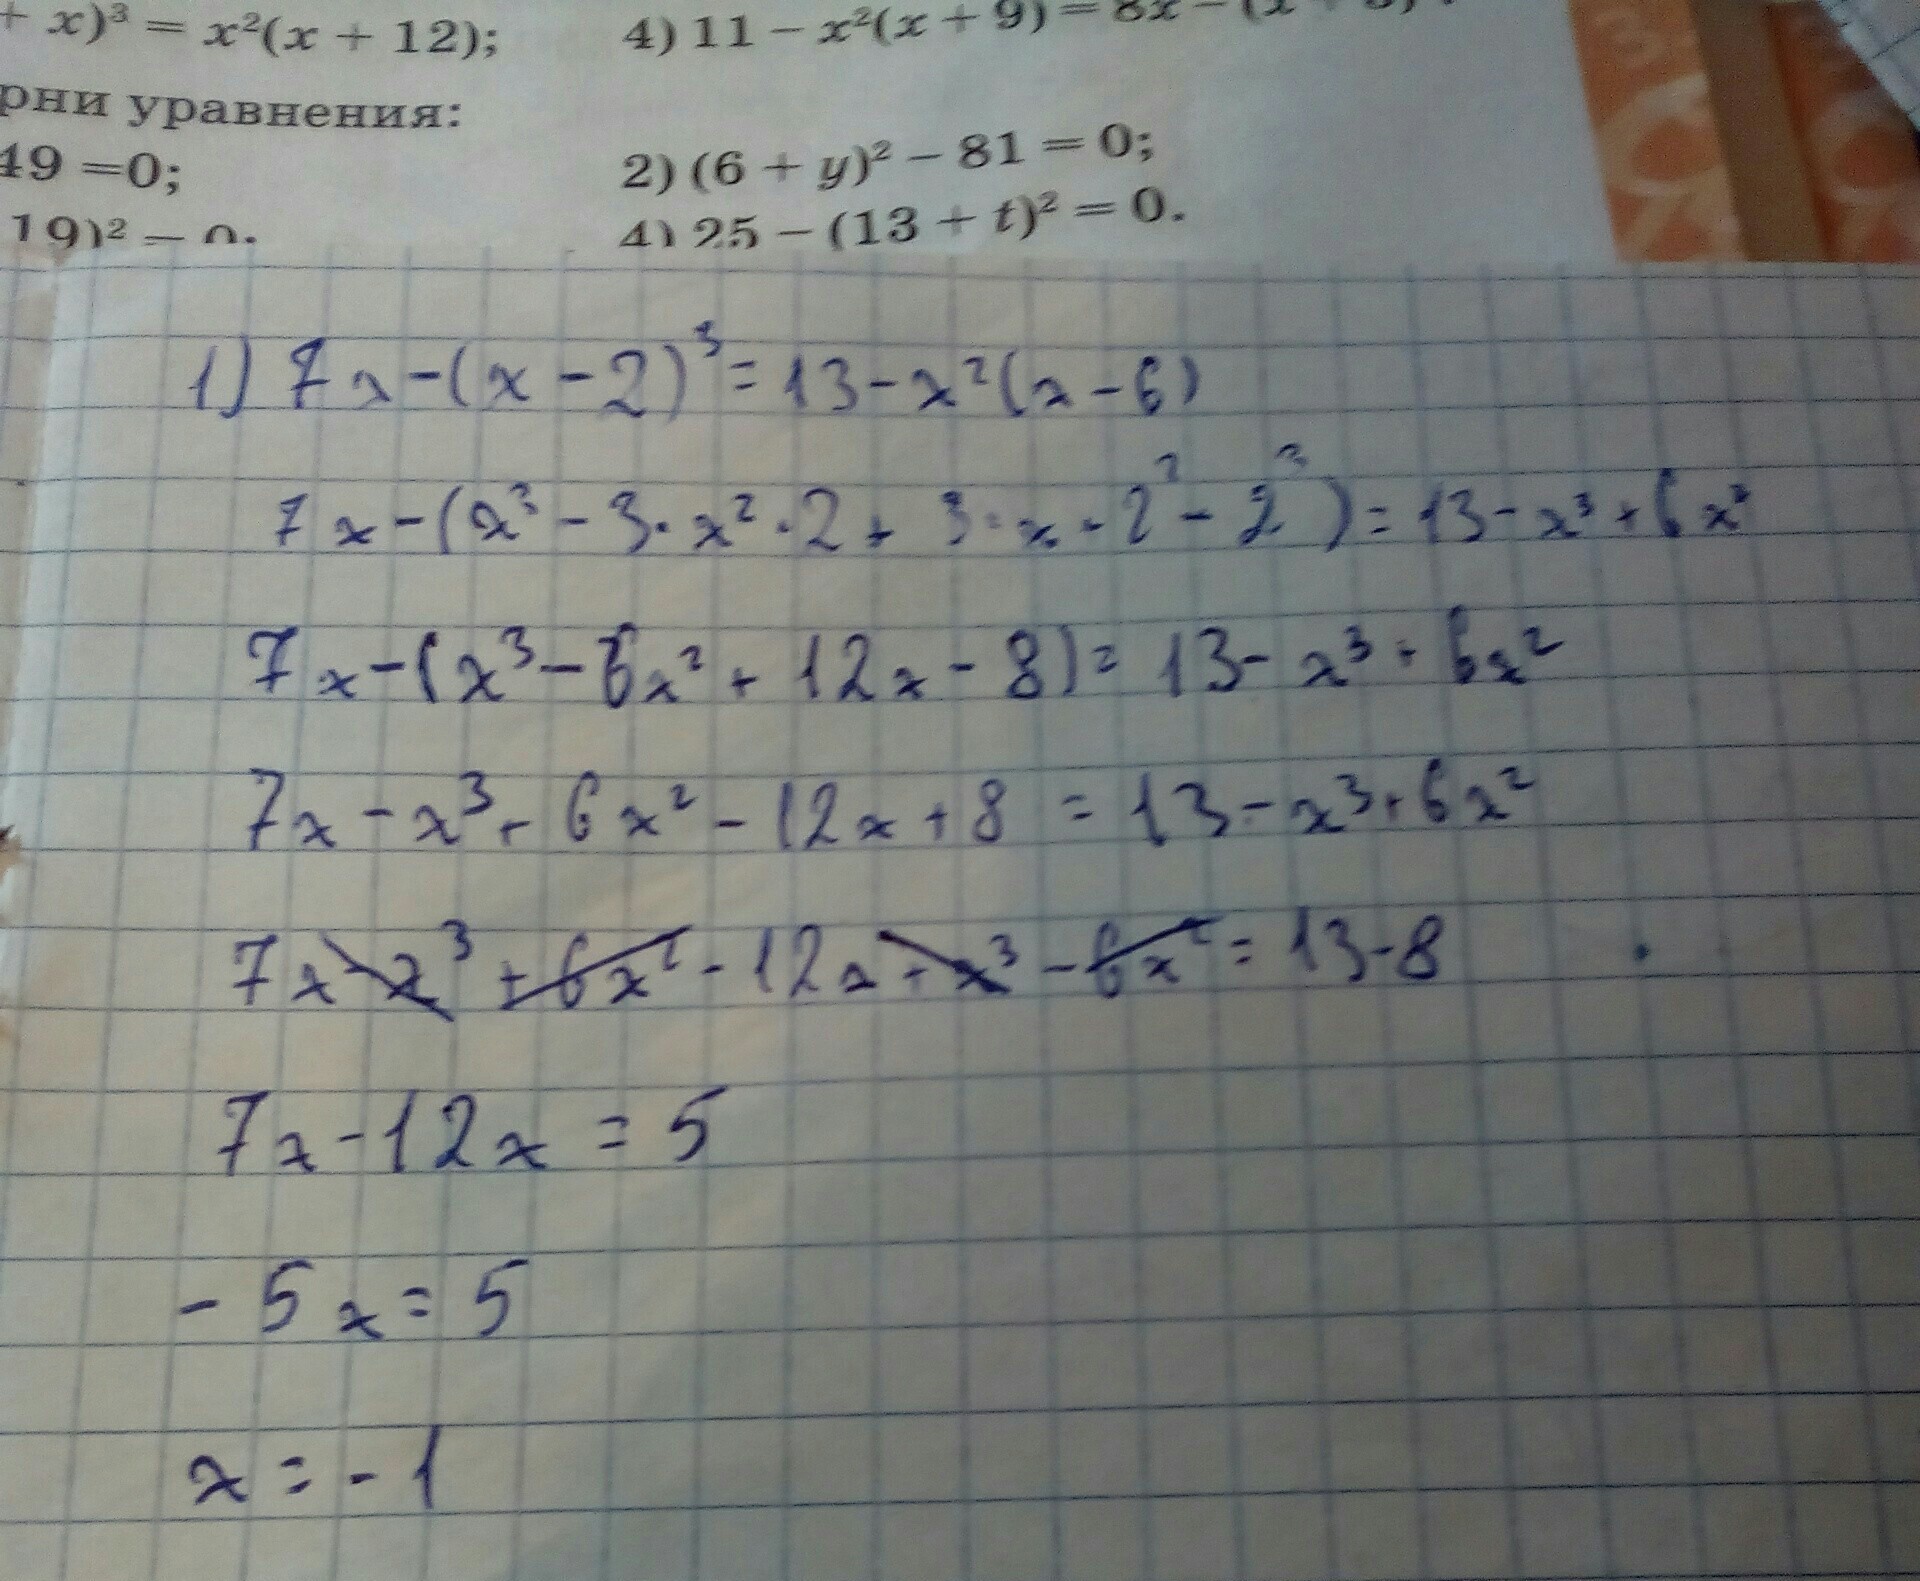 + x)³ = x²(x + 12);
4) 11 − x²(x + 9) = 8x −
рни уравнения:
49 =0;
2) (6 + y)² − 81 = 0;
19)² = 0.
4) 25 − (13 + t)² = 0.
1) 7x-(x-2)³=13-x²(x-6)
7x-(x³-3·x²·2+3·x·2²-2³)=13-x³+6x²
7x-(x³-6x²+12x-8)=13-x³+6x²
7x-x³+6x²-12x+8=13-x³+6x²
7x-x³+6x²-12x+x³-6x²=13-8
7x-12x=5
-5x=5
x=-1